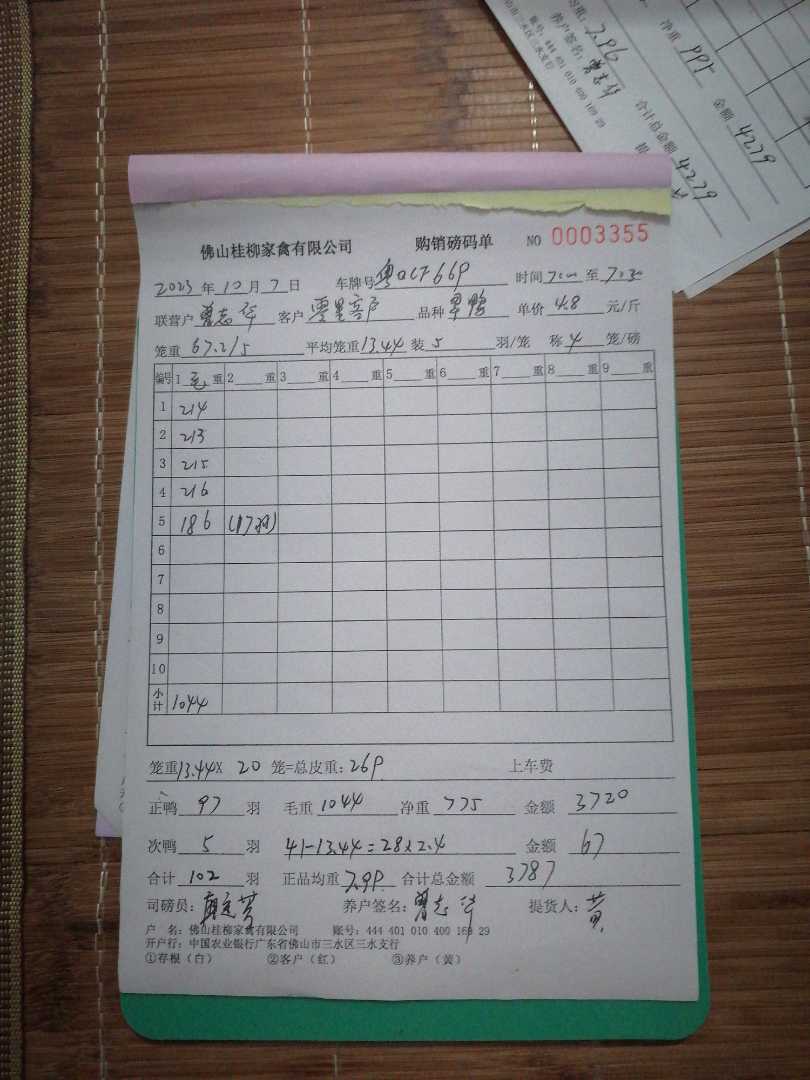 均重: 7.96 净重 995 金额 4279
养户签名: 曾志华 合计总金额 4279
账号: 444 401 010 400 169 29
山市三水区三水支行
佛山桂柳家禽有限公司 购销磅码单 NO 0003355
2023 年 10 月 7 日 车牌号 时间 至 7:30
联营户 曾志华 客户 零星客户 品种 单价 4.8 元/斤
笼重 67.2/5 平均笼重 13.44 装 5 羽/笼 称 4 笼/磅
编号 1 毛 重 2 重 3 重 4 重 5 重 6 重 7 重 8 重 9 重
1 214
2 213
3 215
4 216
5 186 (17羽)
6
7
8
9
10
小计 1044
笼重 13.44 X 20 笼=总皮重: 269 上车费
正鸭 97 羽 毛重 1044 净重 775 金额 3720
次鸭 5 羽 41-13.44=28×2.4 金额 67
合计 102 羽 正品均重 7.99 合计总金额 3787
司磅员: 养户签名: 曾志华 提货人: 黄
户 名: 佛山桂柳家禽有限公司 账号: 444 401 010 400 169 29
开户行: 中国农业银行广东省佛山市三水区三水支行
①存根(白) ②客户(红) ③养户(黄)